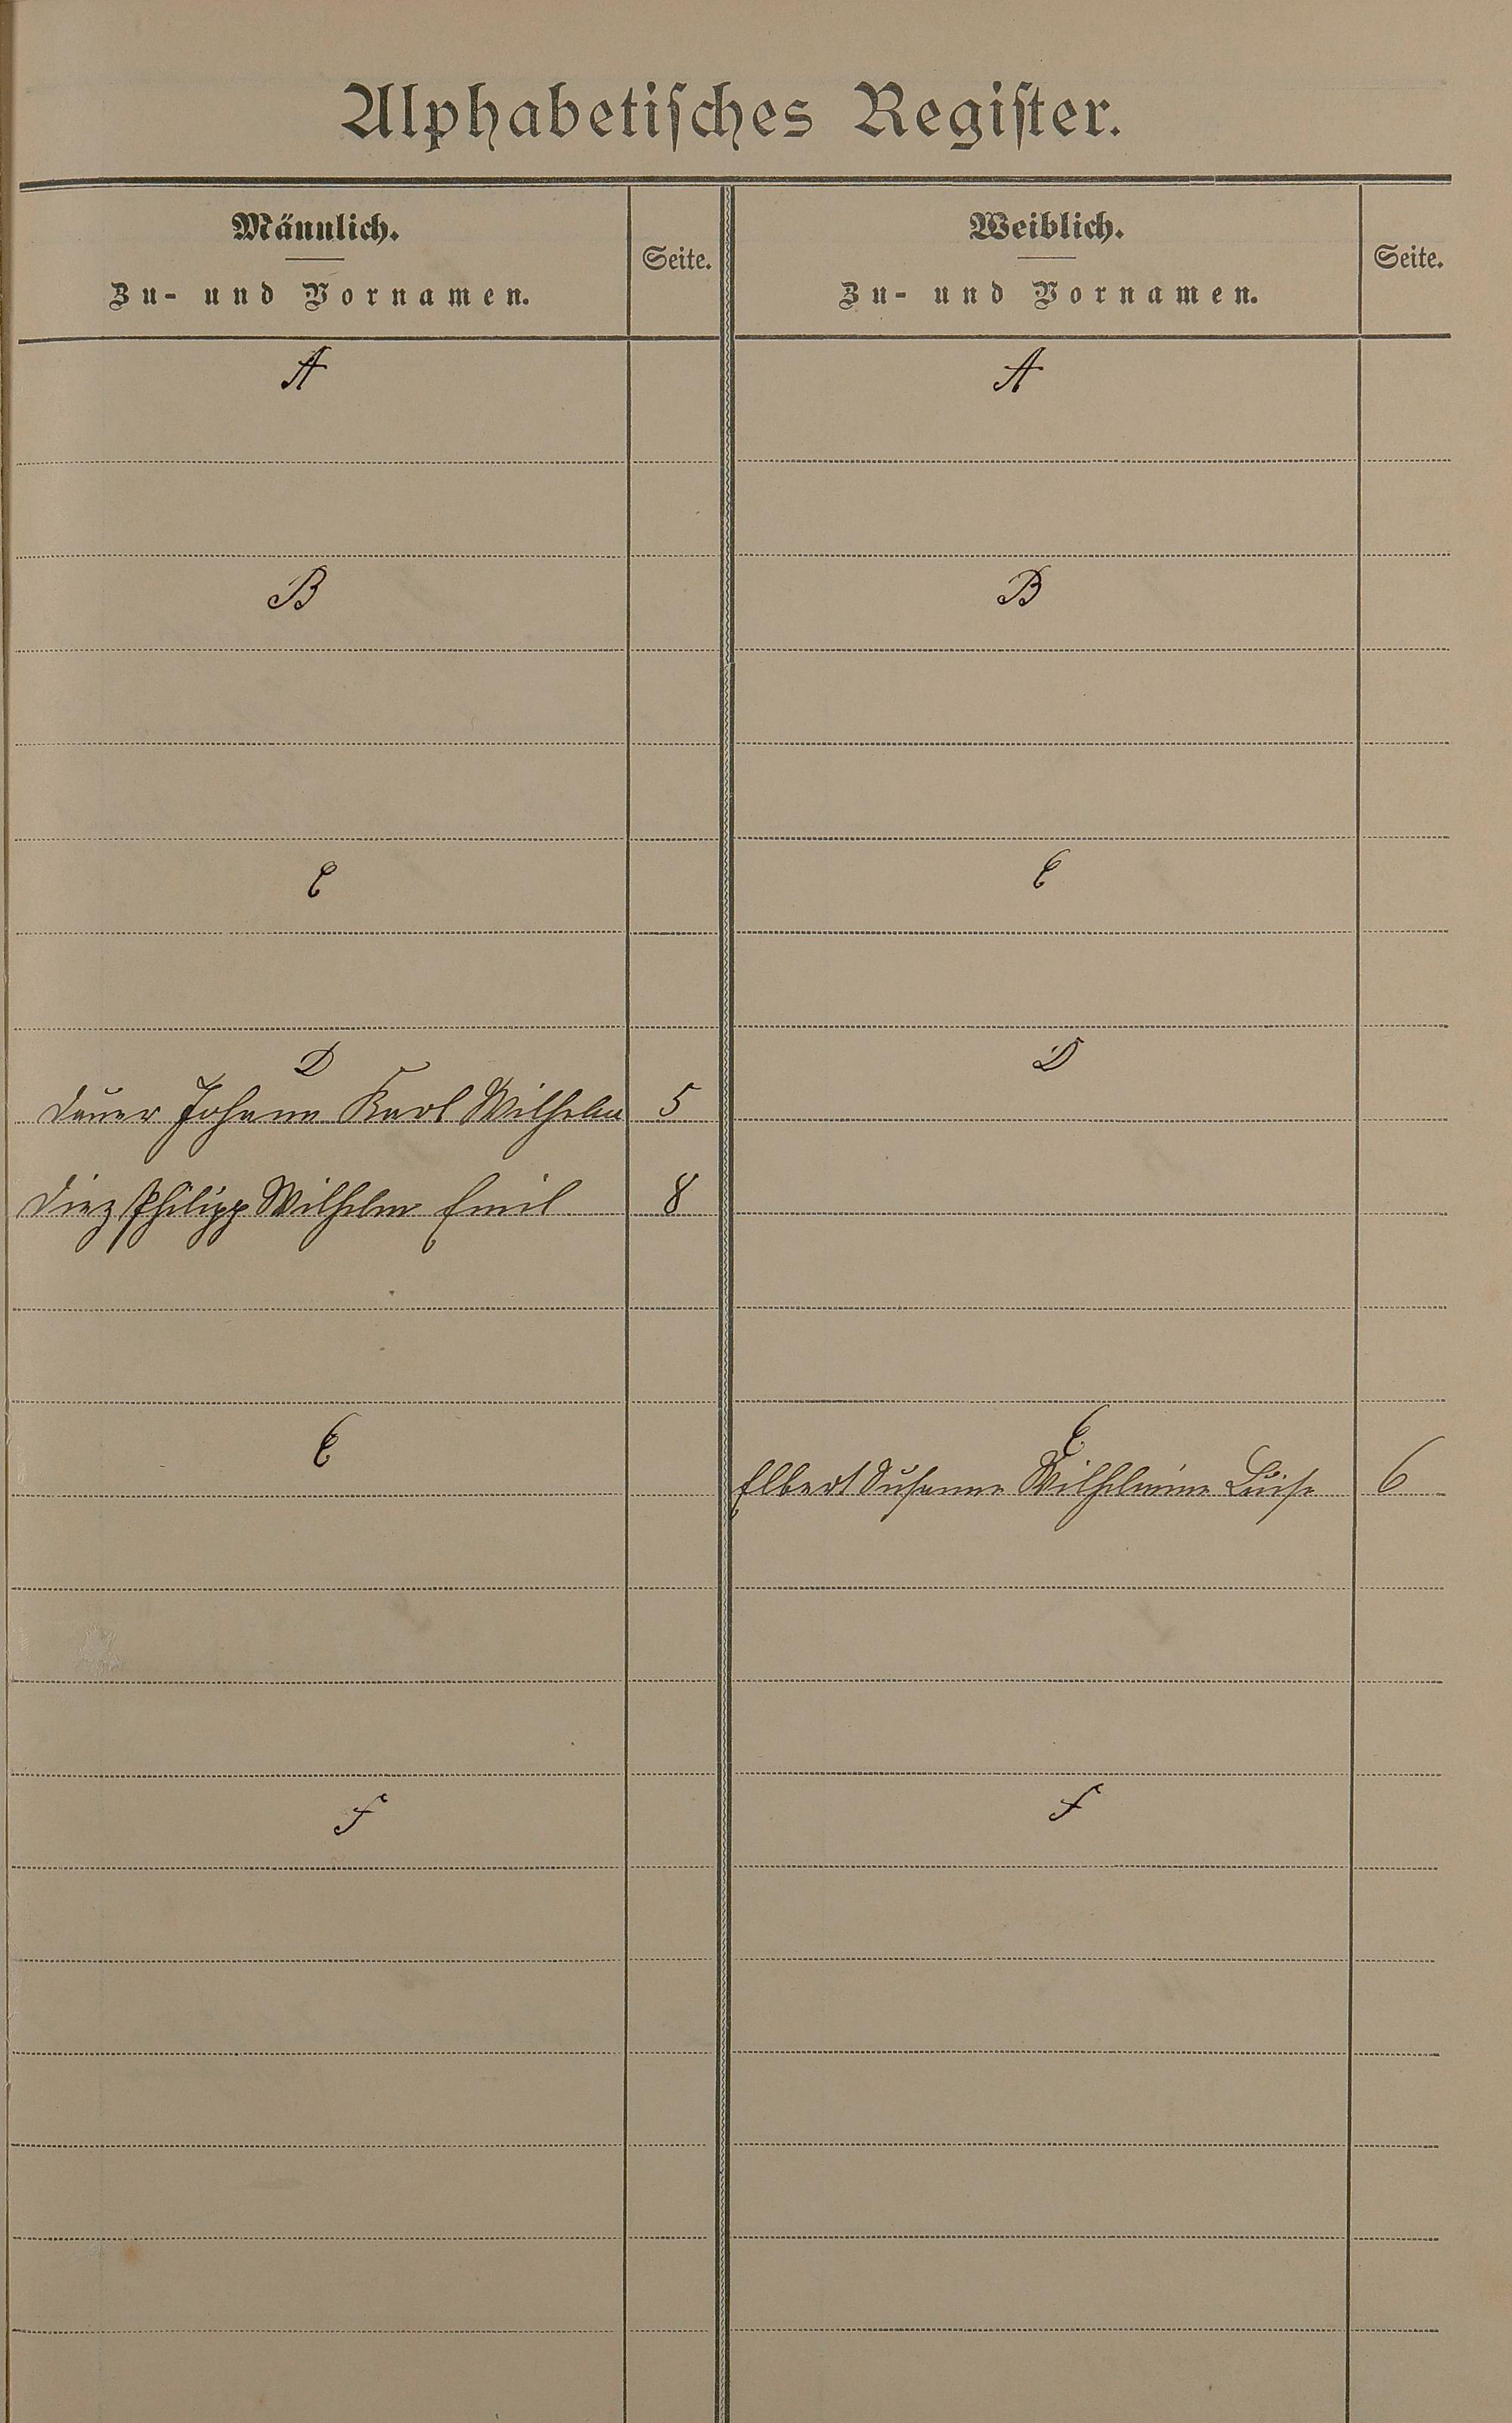 Alphabetisches Register.
Männlich.
Zu- und Vornamen.
Seite.
Weiblich.
Zu- und Vornamen.
Seite.
A
A
B
B
C
C
D
D
Dauer Johann Karl Wilhelm 5
Diez Philipp Wilhelm Emil 8
E
E
Elbert Susanne Wilhelmine Luise 6
F
F